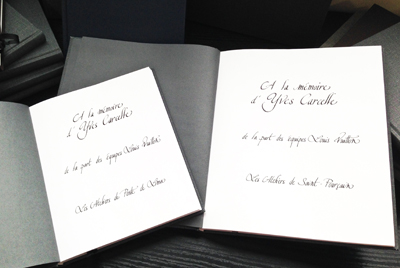 A la mémoire
d'Yves Carcelle
de la part des équipes Louis Vuitton
Les Ateliers de
A la mémoire
d'Yves Carcelle
de la part des équipes Louis Vuitton
Les Ateliers de Saint Pourçain